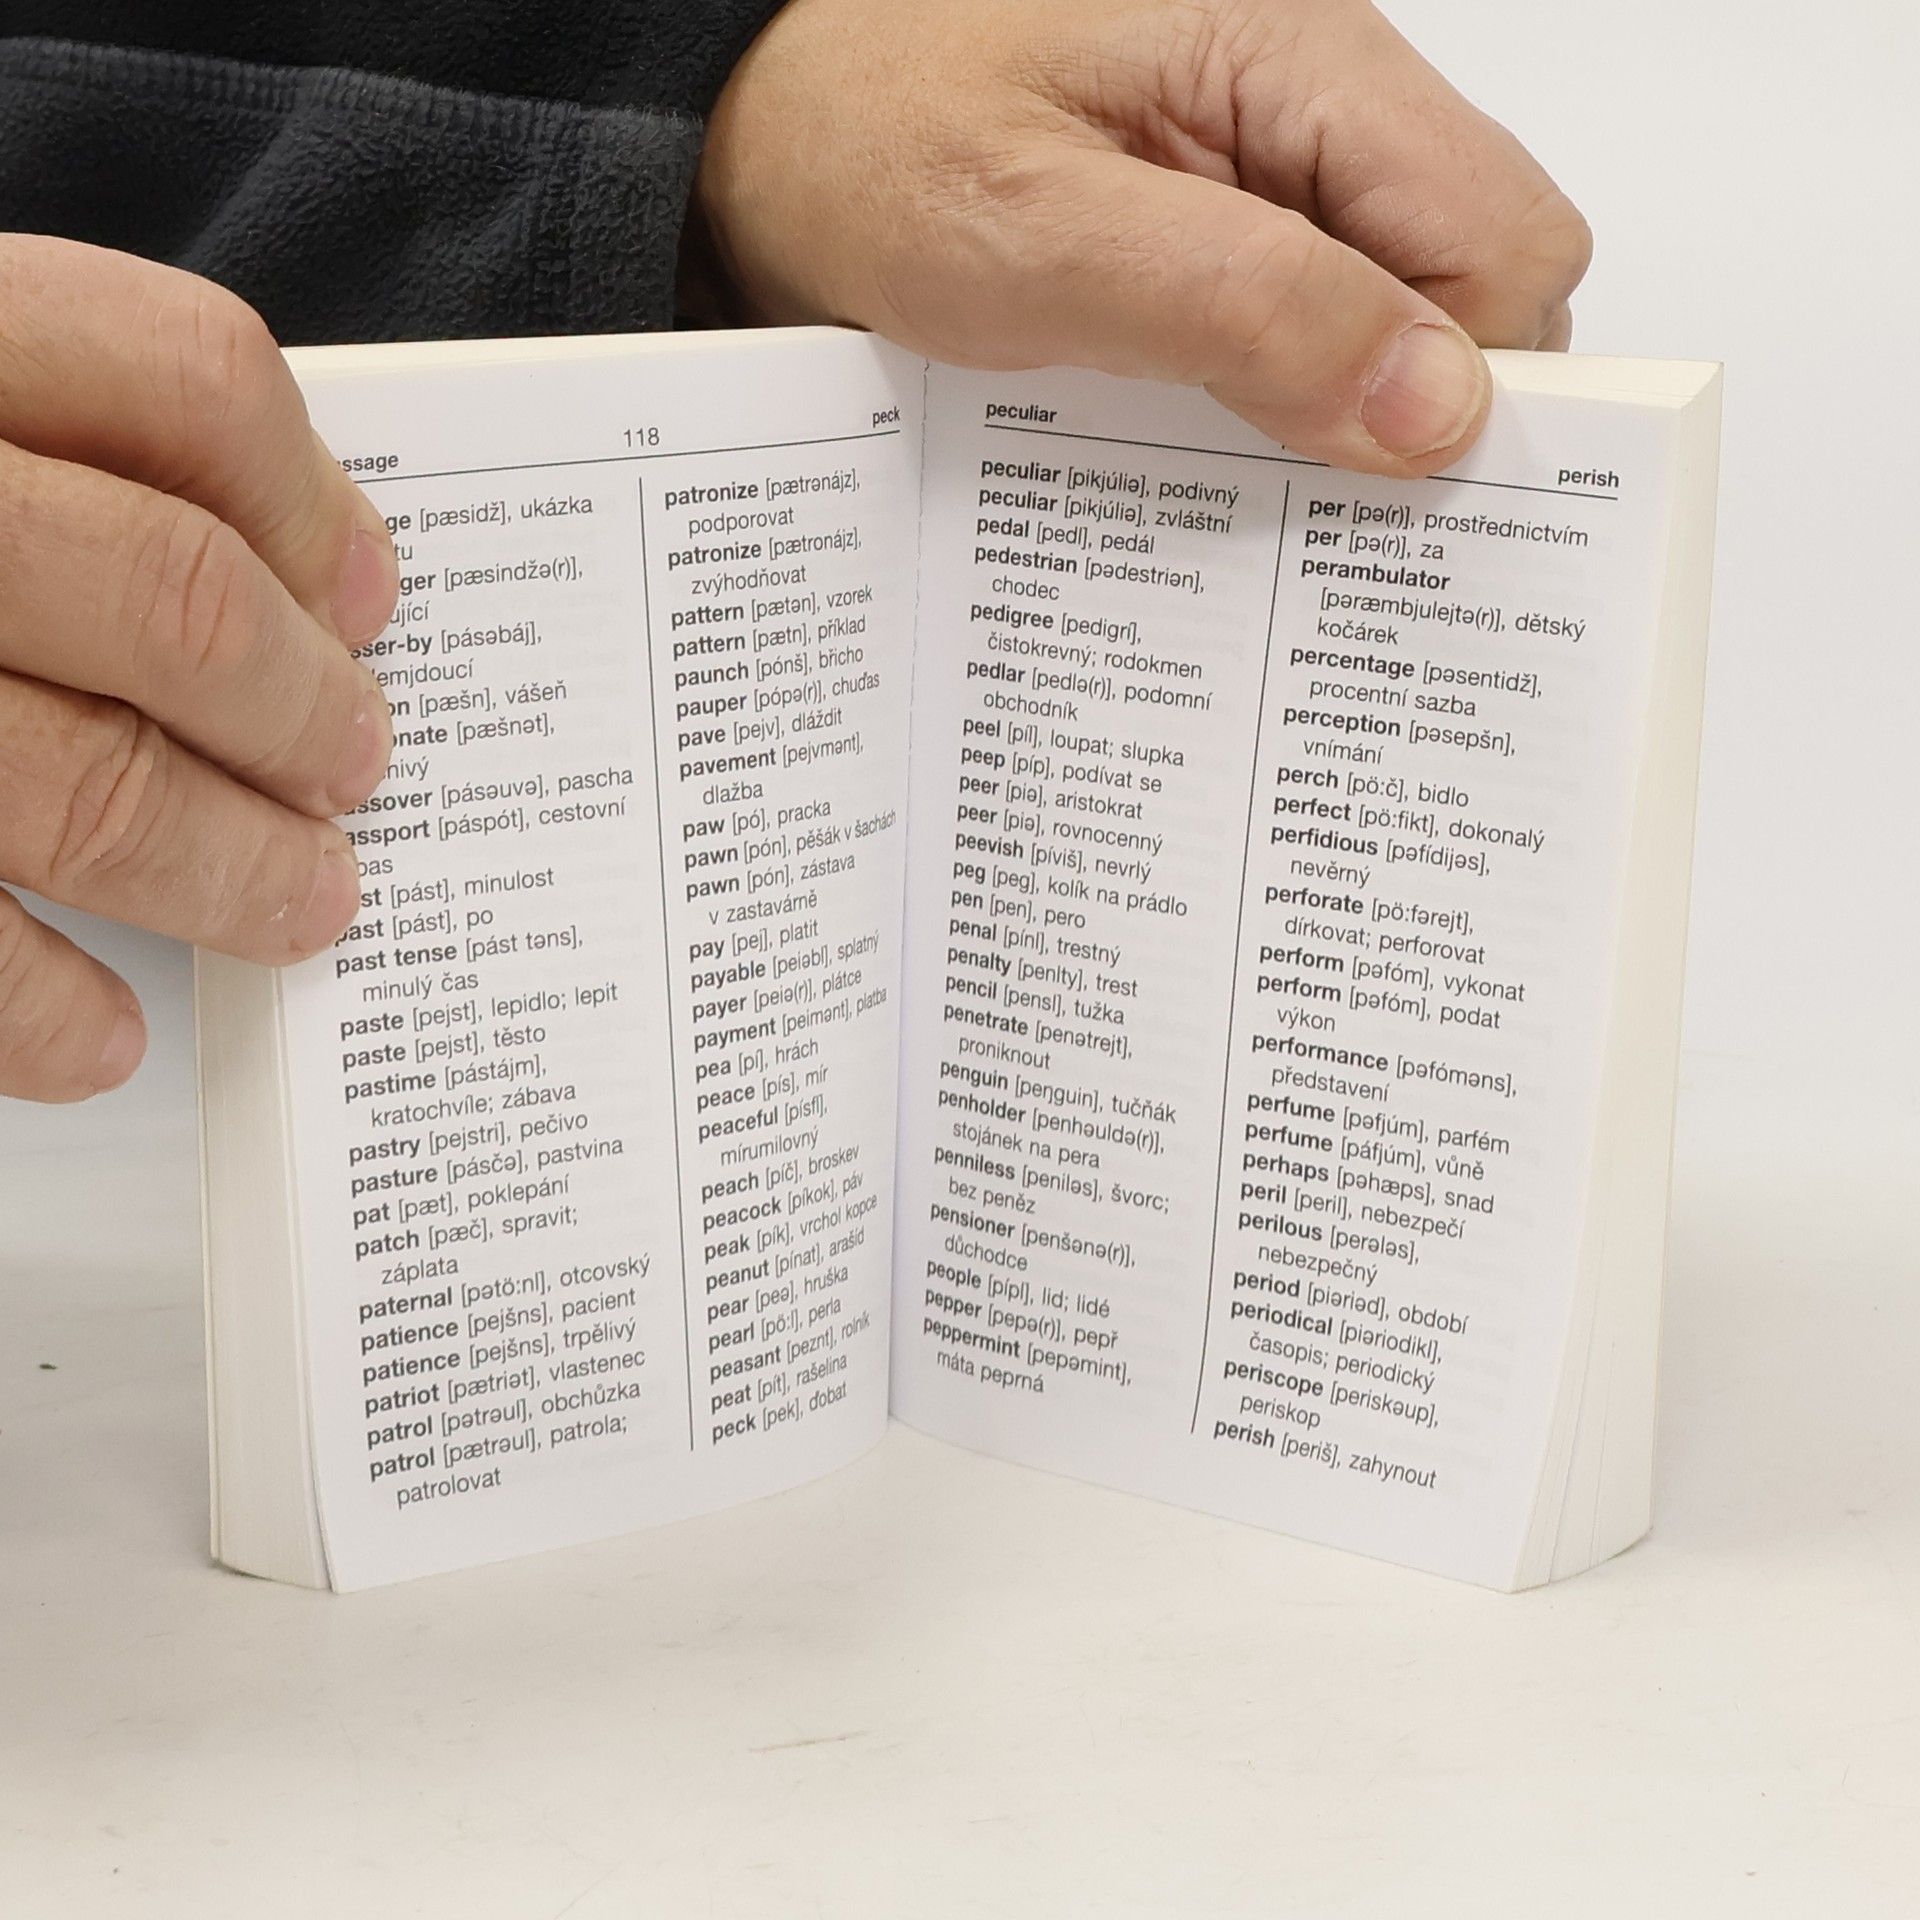 118
peck
[pæsidž], ukázka
[pæsindžə(r)],
[pásəbáj],
[pæšn], vášeň
[pæšnət],
[pásəuvə], pascha
[páspót], cestovní
[pást], minulost
past [pást], po
past tense [pást təns],
minulý čas
paste [pejst], lepidlo; lepit
paste [pejst], těsto
pastime [pástájm],
kratochvíle; zábava
pastry [pejstri], pečivo
pasture [pásčə], pastvina
pat [pæt], poklepání
patch [pæč], spravit;
záplata
paternal [pətö:nl], otcovský
patience [pejšns], pacient
patience [pejšns], trpělivý
patriot [pætriət], vlastenec
patrol [pətrəul], obchůzka
patrol [pætrəul], patrola;
patrolovat
patronize [pætrənájz],
podporovat
patronize [pætronájz],
zvýhodňovat
pattern [pætən], vzorek
pattern [pætn], příklad
paunch [pónš], břicho
pauper [pópə(r)], chuďas
pave [pejv], dláždit
pavement [pejvmənt],
dlažba
paw [pó], pracka
pawn [pón], pěšák v šachách
pawn [pón], zástava
v zastavárně
pay [pej], platit
payable [peiəbl], splatný
payer [peiə(r)], plátce
payment [peimənt], platba
pea [pí], hrách
peace [pís], mír
peaceful [písfl],
mírumilovný
peach [píč], broskev
peacock [píkok], páv
peak [pík], vrchol kopce
peanut [pínat], arašíd
pear [peə], hruška
pearl [pö:l], perla
peasant [peznt], rolník
peat [pít], rašelina
peck [pek], ďobat
peculiar
perish
peculiar [pikjúliə], podivný
peculiar [pikjúliə], zvláštní
pedal [pedl], pedál
pedestrian [pədestriən],
chodec
pedigree [pedigrí],
čistokrevný; rodokmen
pedlar [pedlə(r)], podomní
obchodník
peel [píl], loupat; slupka
peep [píp], podívat se
peer [piə], aristokrat
peer [piə], rovnocenný
peevish [píviš], nevrlý
peg [peg], kolík na prádlo
pen [pen], pero
penal [pínl], trestný
penalty [penlty], trest
pencil [pensl], tužka
penetrate [penətrejt],
proniknout
penguin [peŋguin], tučňák
penholder [penhəuldə(r)],
stojánek na pera
penniless [peniləs], švorc;
bez peněz
pensioner [penšənə(r)],
důchodce
people [pípl], lid; lidé
pepper [pepə(r)], pepř
peppermint [pepəmint],
máta peprná
per [pə(r)], prostřednictvím
per [pə(r)], za
perambulator
[pəræmbjulejtə(r)], dětský
kočárek
percentage [pəsentidž],
procentní sazba
perception [pəsepšn],
vnímání
perch [pö:č], bidlo
perfect [pö:fikt], dokonalý
perfidious [pəfídijəs],
nevěrný
perforate [pö:fərejt],
dírkovat; perforovat
perform [pəfóm], vykonat
perform [pəfóm], podat
výkon
performance [pəfóməns],
představení
perfume [pəfjúm], parfém
perfume [páfjúm], vůně
perhaps [pəhæps], snad
peril [peril], nebezpečí
perilous [perələs],
nebezpečný
period [piəriəd], období
periodical [piəriodikl],
časopis; periodický
periscope [periskəup],
periskop
perish [periš], zahynout